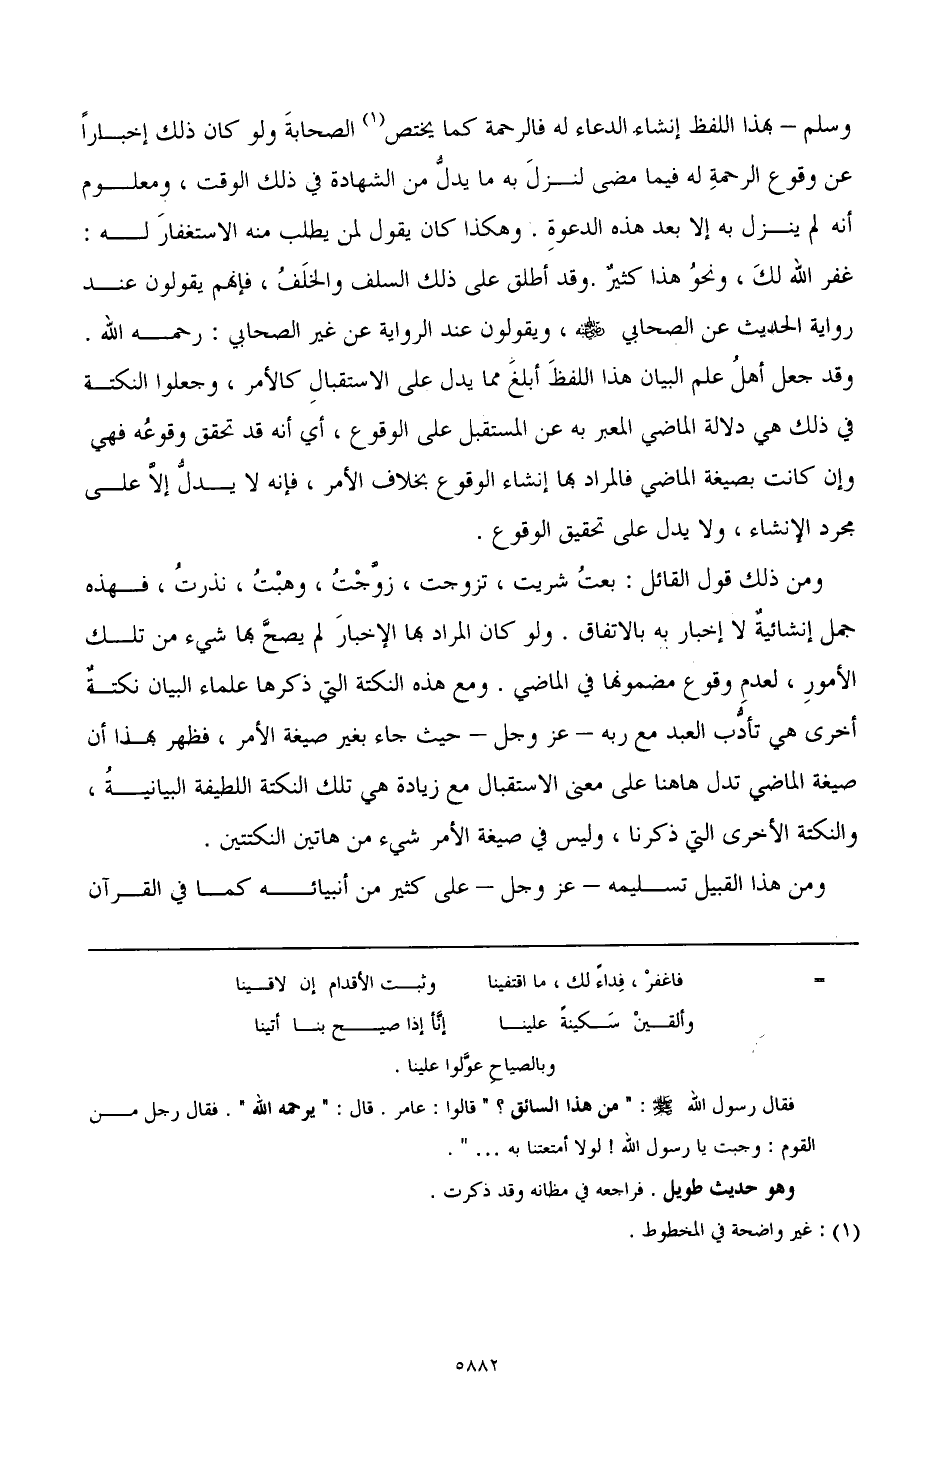 وسلم – بهذا اللفظ إنشاء الدعاء له فالرحمة كما يختص(١) الصحابةَ ولو كان ذلك إخبـــاراً
عن وقوع الرحمةِ له فيما مضى لنـــزلَ به ما يدلُّ من الشهادة في ذلك الوقت ، ومعلـــوم
أنه لم ينـــزل به إلا بعد هذه الدعوةِ . وهكذا كان يقول لمن يطلب منه الاستغفارَ لـــه :
غفر الله لكَ ، ونحوُ هذا كثيرٌ .وقد أطلق على ذلك السلف والخلَفُ ، فإنهم يقولون عنـــد
رواية الحديث عن الصحابي ﷺ ، ويقولون عند الرواية عن غير الصحابي : رحمـــه الله .
وقد جعل أهلُ علم البيان هذا اللفظَ أبلغَ مما يدل على الاستقبالِ كالأمر ، وجعلوا النكتـــة
في ذلك هي دلالة الماضي المعبر به عن المستقبل على الوقوع ، أي أنه قد تحقق وقوعُه فهي
وإن كانت بصيغة الماضي فالمراد بها إنشاء الوقوع بخلاف الأمر ، فإنه لا يـــدلُّ إلاَّ علـــى
مجرد الإنشاء ، ولا يدل على تحقيق الوقوع .
ومن ذلك قول القائل : بعتُ شريت ، تزوجت ، زوَّجْتُ ، وهبْتُ ، نذرتُ ، فـــهذه
جمل إنشائيةٌ لا إخبار به بالاتفاق . ولو كان المراد بها الإخبارَ لم يصحَّ بها شيء من تلـــك
الأمورِ ، لعدمِ وقوع مضمونها في الماضي . ومع هذه النكتة التي ذكرها علماء البيان نكتـــةٌ
أخرى هي تأدُّب العبد مع ربه – عز وجل – حيث جاء بغير صيغة الأمر ، فظهر بهـــذا أن
صيغة الماضي تدل هاهنا على معنى الاستقبال مع زيادة هي تلك النكتة اللطيفة البيانيـــةُ ،
والنكتة الأخرى التي ذكرنا ، وليس في صيغة الأمر شيء من هاتين النكتتين .
ومن هذا القبيل تســـليمه – عز وجل – على كثير من أنبيائـــه كمـــا في القـــرآن
= فاغفرْ ، فِداءً لك ، ما اقتفينا وثبـــت الأقدام إن لاقـــينا
وألقـــينْ سَـــكينةً علينـــا إنَّا إذا صيـــح بنـــا أتينا
وبالصياحِ عوَّلوا علينا .
فقال رسول الله ﷺ : " من هذا السائق ؟ " قالوا : عامر . قال : " يرحمه الله " . فقال رجل مـــن
القوم : وجبت يا رسول الله ! لولا أمتعتنا به ... " .
وهو حديث طويل . فراجعه في مظانه وقد ذكرت .
(١) : غير واضحة في المخطوط .
٥٨٨٢